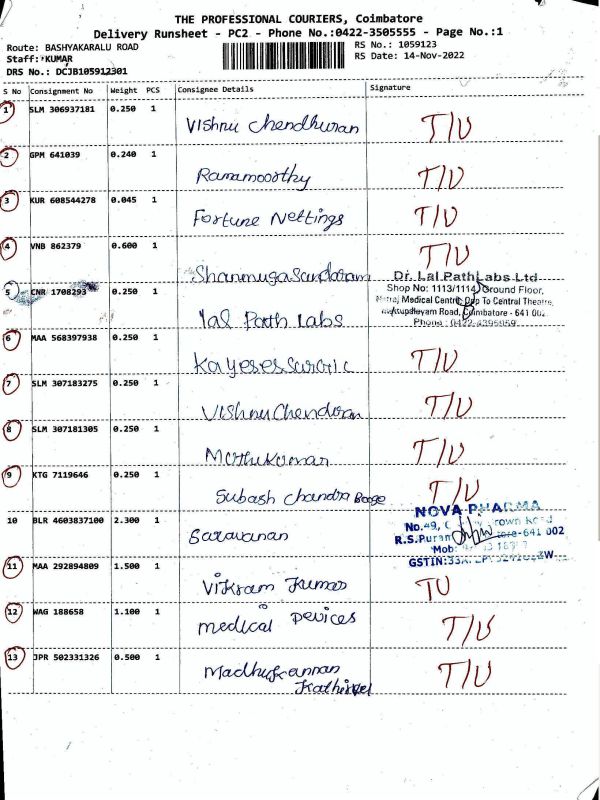 THE PROFESSIONAL COURIERS, Coimbatore
Delivery Runsheet - PC2 - Phone No.:0422-3505555 - Page No.:1
Route: BASHYAKARALU ROAD
RS No.: 1059123
Staff:*KUMAR
RS Date: 14-Nov-2022
DRS No.: DCJB105912301
S No Consignment No Weight PCS Consignee Details Signature
1 SLM 306937181 0.250 1
Vishnu Chendhuran T/U
2 GPM 641039 0.240 1
Ramamoorthy T/U
3 KUR 608544278 0.045 1
Fortune Nettings T/U
4 VNB 862379 0.600 1 T/U
Shanmugasundaram
Dr. Lal PathLabs Ltd
5 CNR 1708293 0.250 1
Shop No: 1113/1114, Ground Floor,
Medical Centre, Opp To Central Theatre,
Road, Coimbatore - 641 002.
Phone : 0422-4395059
Lal Path Labs
6 MAA 568397938 0.250 1
T/U
7 SLM 307183275 0.250 1
Vishnu Chendoran T/U
8 SLM 307181305 0.250 1
Muthukumar T/U
9 KTG 7119646 0.250 1
Subash Chandra Boose T/U
NOVA PHARMA
10 BLR 4603837100 2.300 1
No.49,
R.S.Puram 641 002
Mob:
GSTIN:
Saravanan
11 MAA 292894809 1.500 1
Vikram Kumar TU
12 WAG 188658 1.100 1
Medical Devices T/U
13 JPR 502331326 0.500 1
Madhukannan T/U
Kathirvel